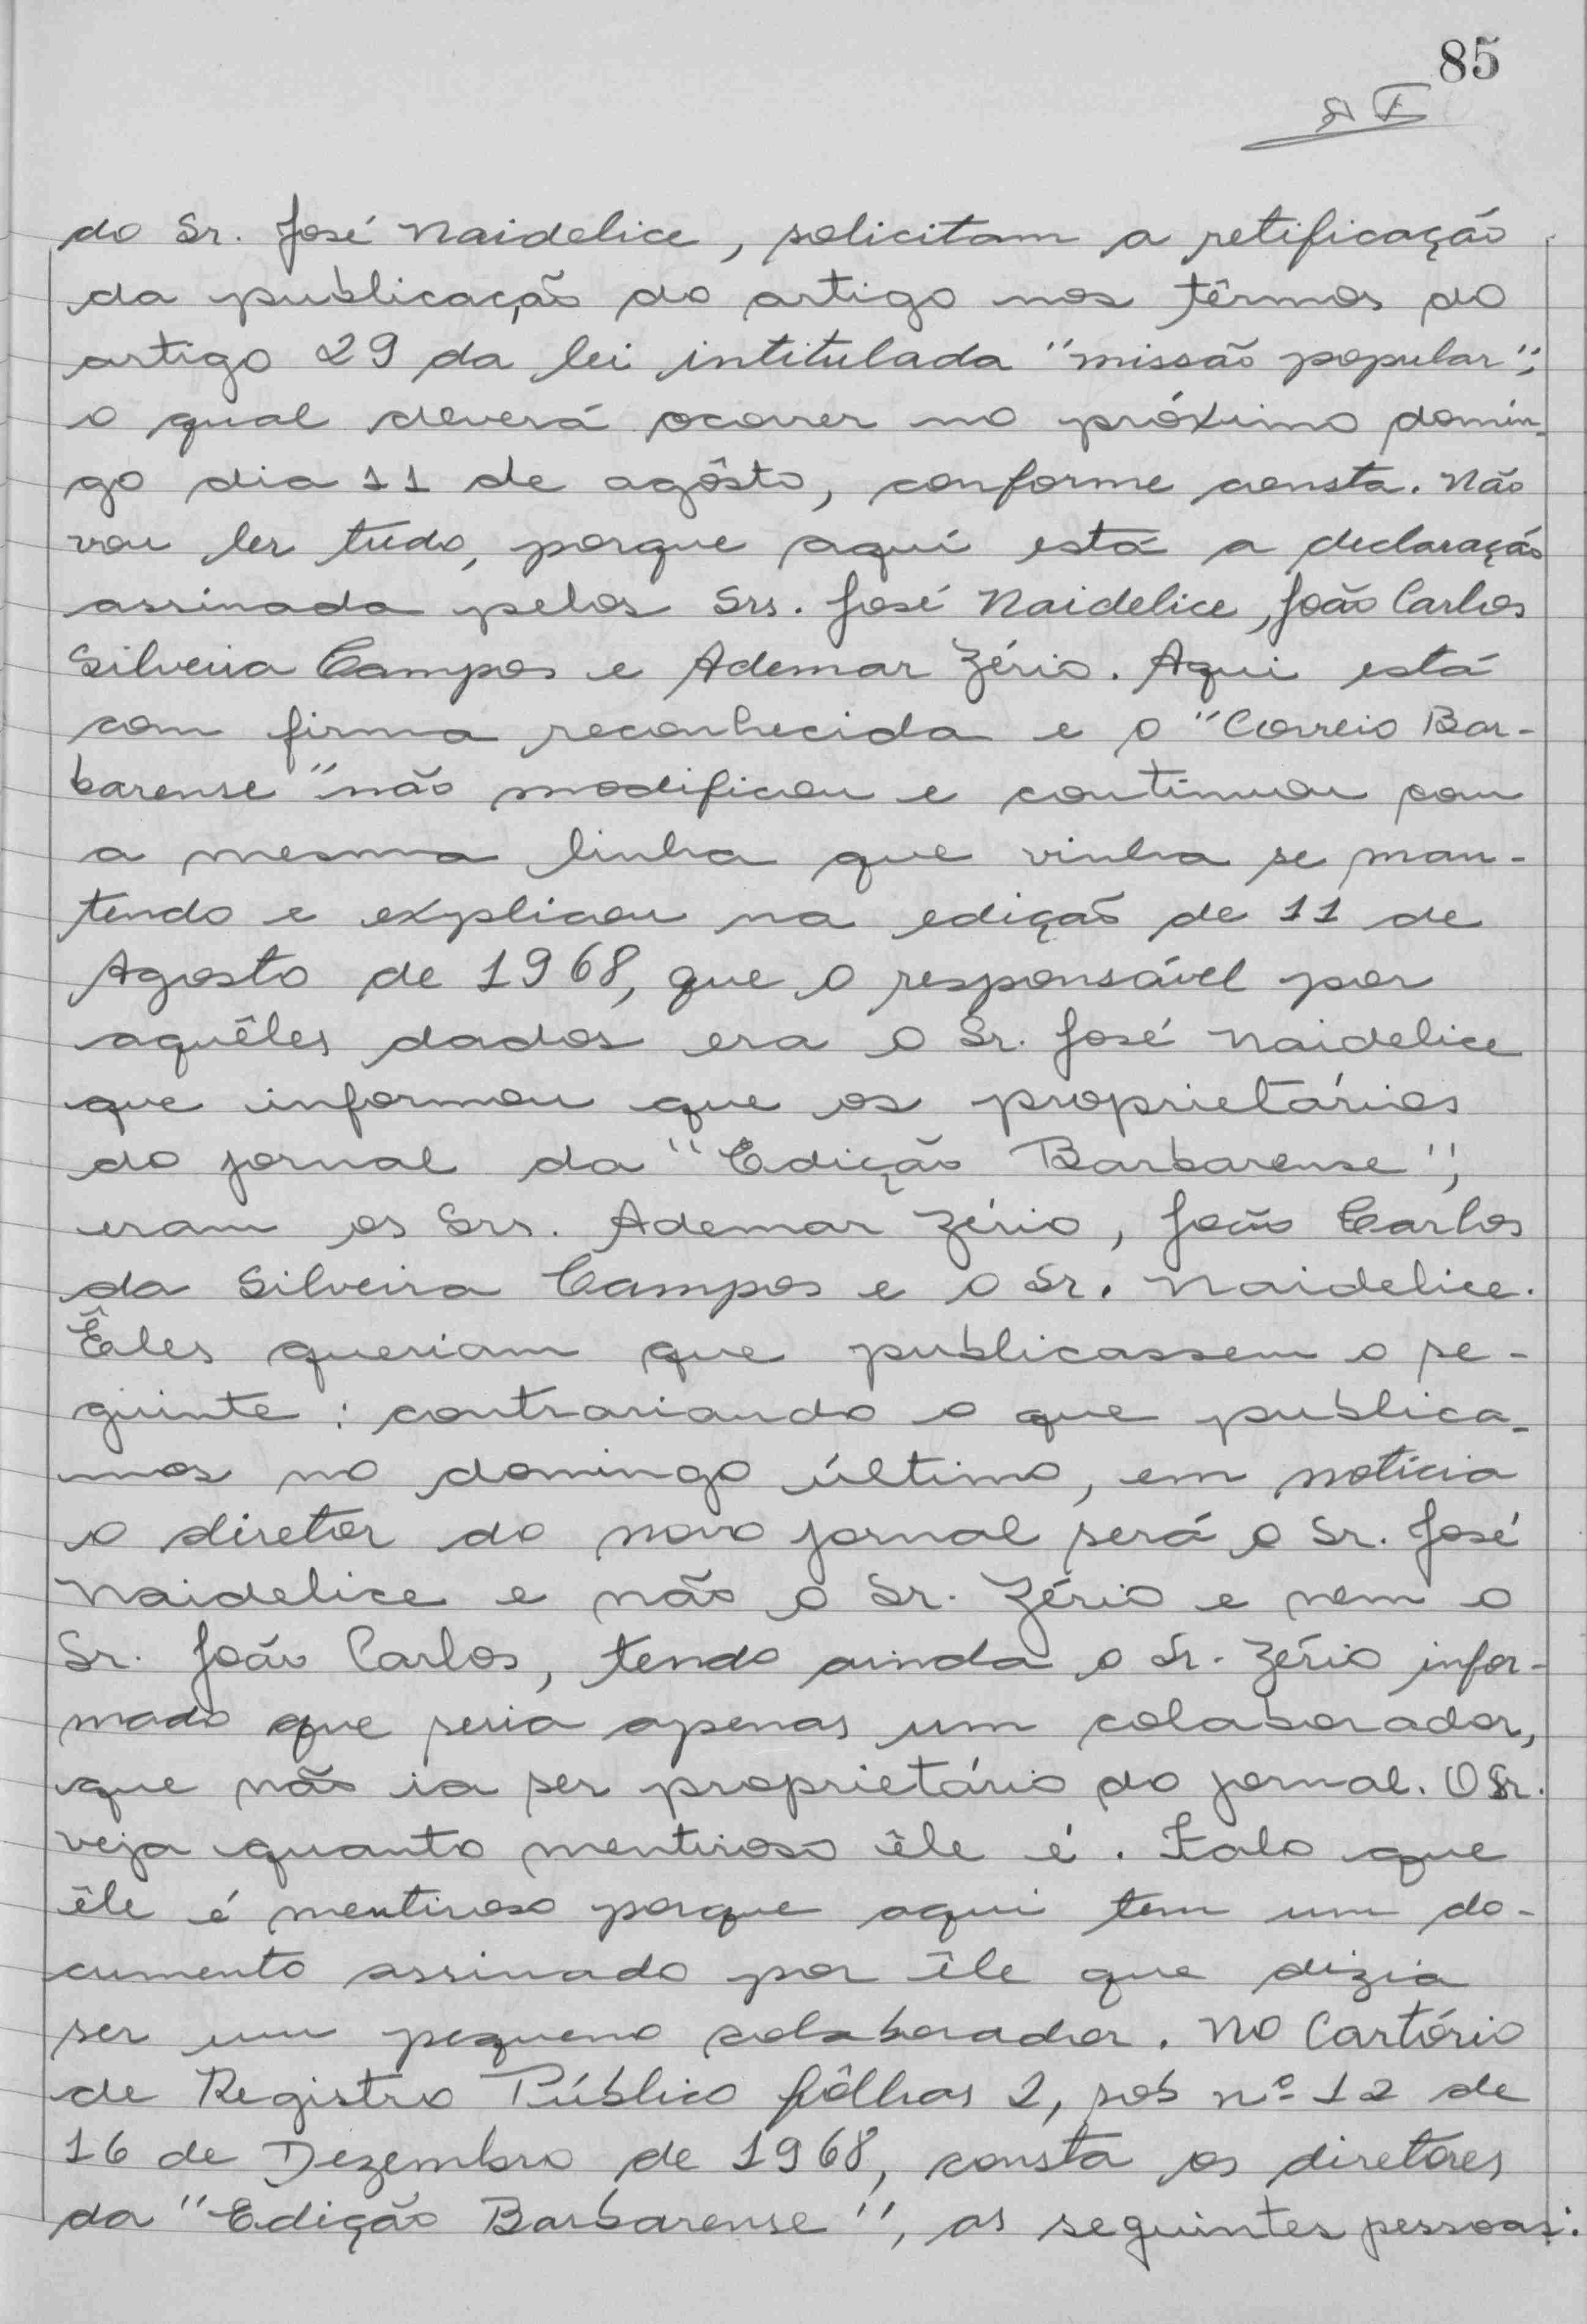 85
do Sr. José Naidelice, solicitam a retificação
da publicação do artigo nos têrmos do
artigo 29 da lei intitulada "missão popular";
o qual deverá ocorrer no próximo domin-
go dia 11 de agôsto, conforme consta. Não
vou ler tudo, porque aqui está a declaração
assinada pelos Srs. José Naidelice, João Carlos
Silveira Campos e Ademar Zério. Aqui está
com firma reconhecida e o "Correio Bar-
barense" não modificou e continuou com
a mesma linha que vinha se man-
tendo e explicou na edição de 11 de
Agosto de 1968, que o responsável por
aquêles dados era o Sr. José Naidelice
que informou que os proprietários
do jornal da "Edição Barbarense",
eram os Srs. Ademar Zério, João Carlos
da Silveira Campos e o Sr. Naidelice.
Êles queriam que publicassem o se-
guinte: contrariando o que publica-
mos no domingo último, em notícia
o diretor do novo jornal será o Sr. José
Naidelice e não o Sr. Zério e nem o
Sr. João Carlos, tendo ainda o Sr. Zério infor-
mado que seria apenas um colaborador,
que não ia ser proprietário do jornal. O Sr.
veja quanto mentiroso êle é. Falo que
êle é mentiroso porque aqui tem um do-
cumento assinado por êle que dizia
ser um pequeno colaborador. No Cartório
de Registro Público fôlhas 2, sob nº 12 de
16 de Dezembro de 1968, consta os diretores
da "Edição Barbarense", as seguintes pessoas: